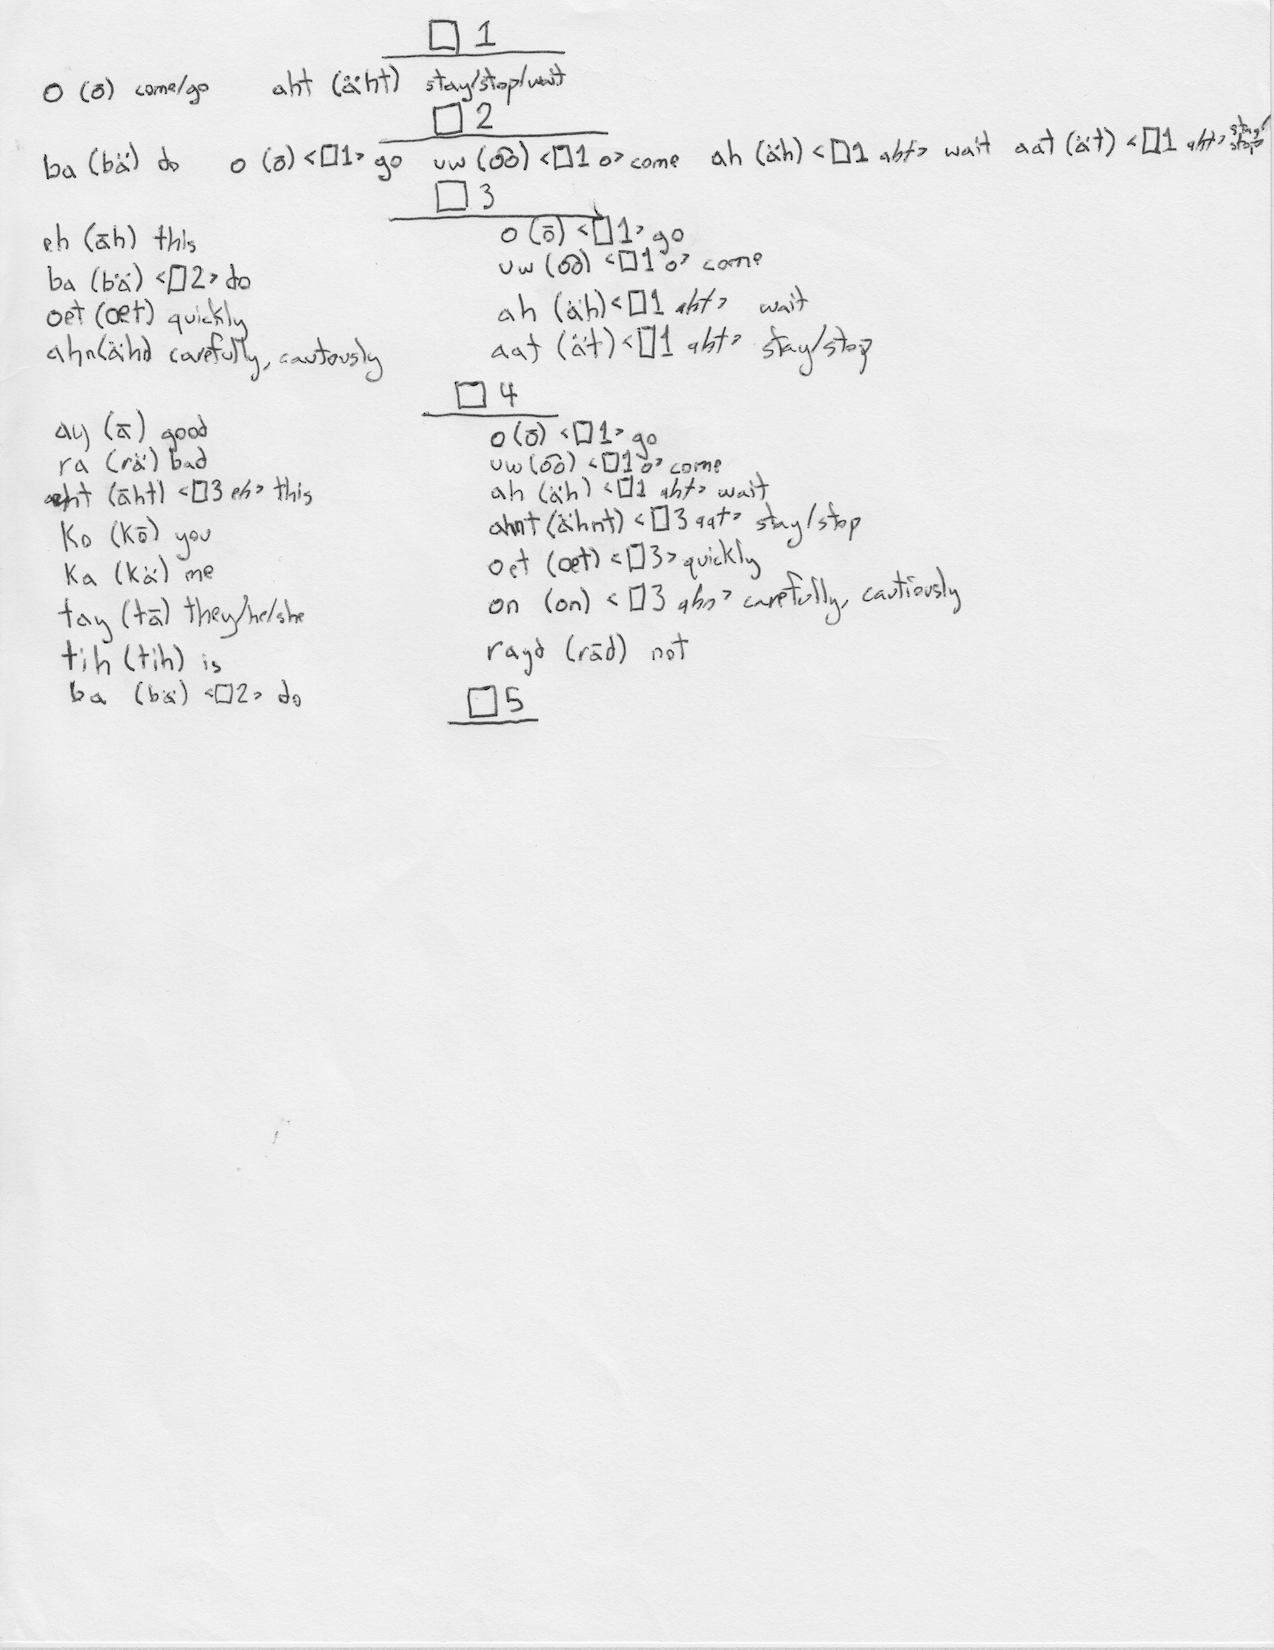 □ 1
o (ō) come/go aht (äht) stay/stop/wait
□ 2
ba (bä) do o (ō) <□1> go uw (o͞o) <□1 o> come ah (äh) <□1 aht> wait aat (ät) <□1 aht> stay/stop
□ 3
eh (āh) this
ba (bä) <□2> do
oet (oet) quickly
ahn (ähn) carefully, cautously
o (ō) <□1> go
uw (o͞o) <□1 o> come
ah (äh) <□1 aht> wait
aat (ät) <□1 aht> stay/stop
□ 4
ay (ā) good
ra (rä) bad
eht (āht) <□3 eh> this
ko (kō) you
ka (kä) me
tay (tā) they/he/she
tih (tih) is
ba (bä) <□2> do
o (ō) <□1> go
uw (o͞o) <□1 o> come
ah (äh) <□1 aht> wait
ahnt (ähnt) <□3 aat> stay/stop
oet (oet) <□3> quickly
on (on) <□3 ahn> carefully, cautiously
rayd (rād) not
□ 5